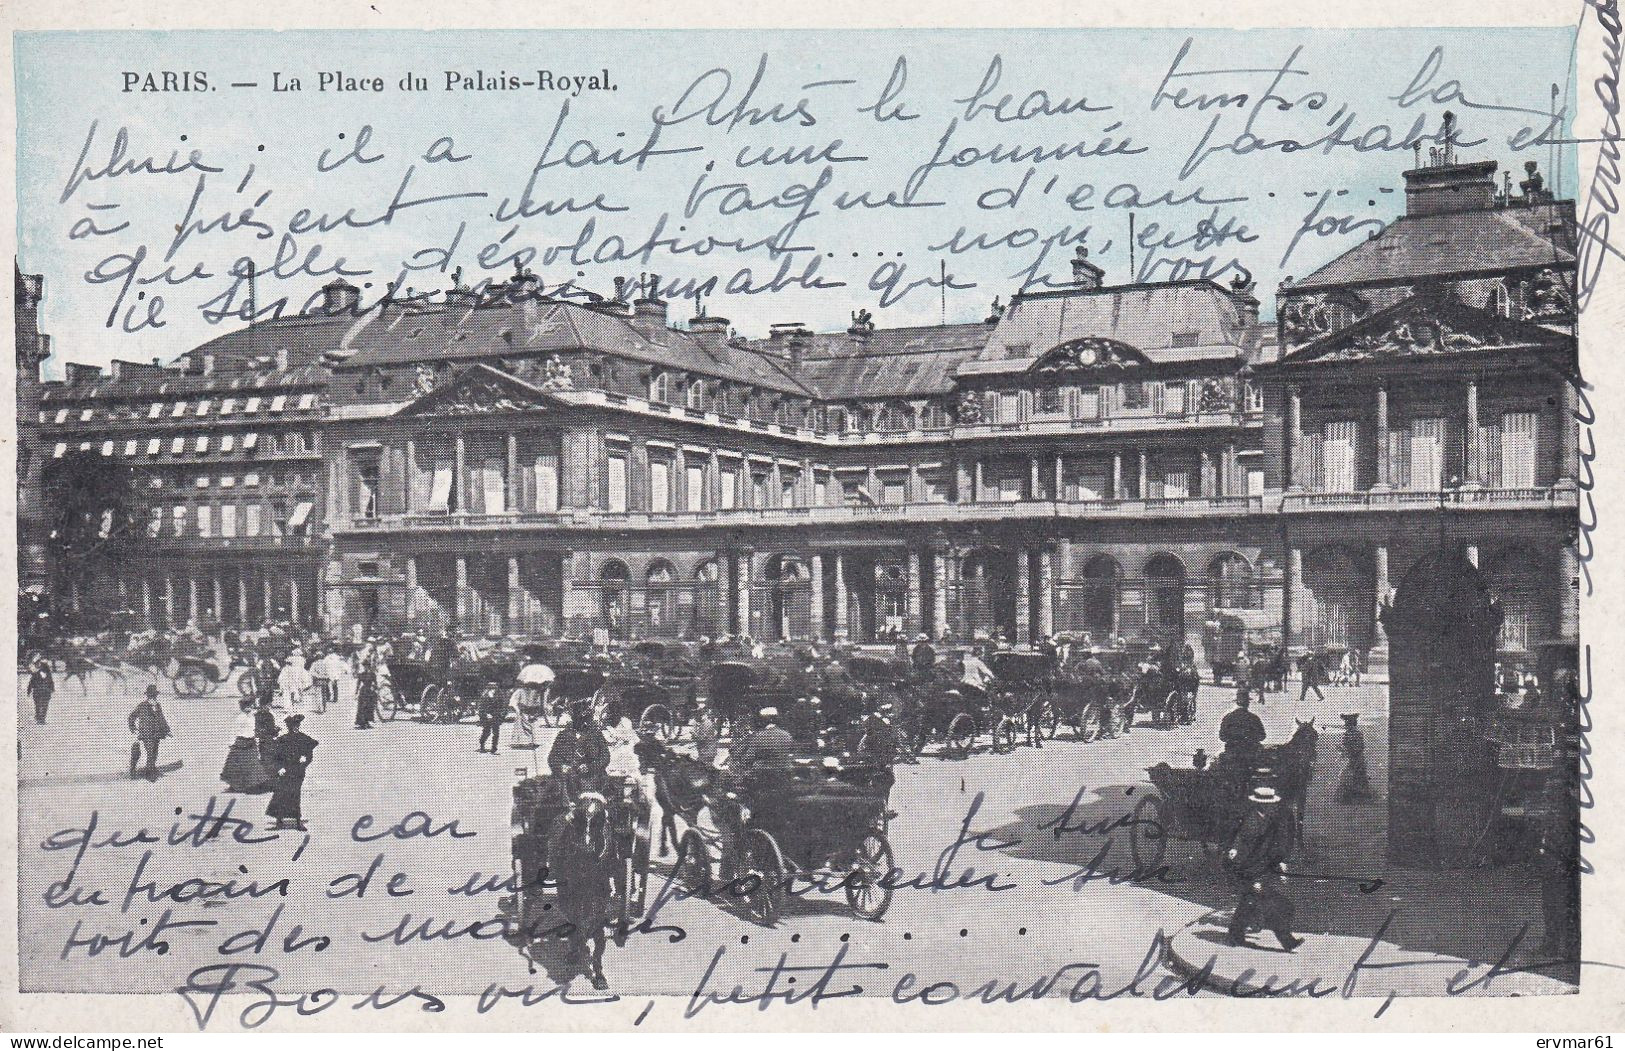 PARIS. — La Place du Palais-Royal.
Après le beau temps, la
pluie ; il a fait une journée passable et
à présent une vague d'eau . . . .
quelle désolation . . . non, cette fois
il serait raisonnable que je vois
quitte, car je suis
en train de me promener sur les
toits des maisons . . . . . . .
Bonsoir, petit convalescent, et
bonne nuit
Normand
Delcampe.net
ervmar61